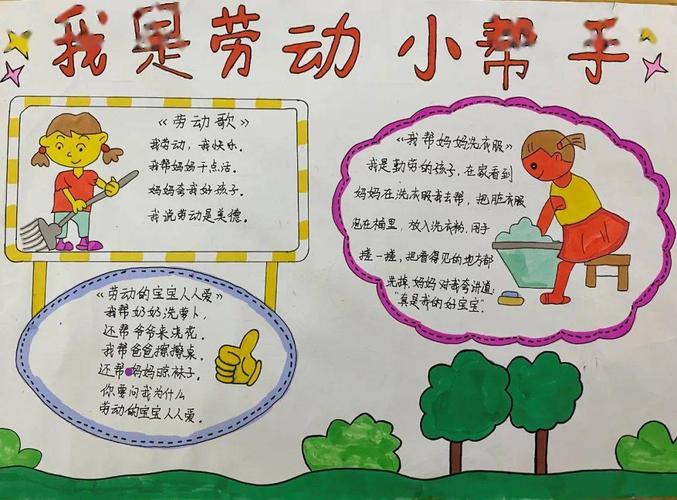 我是劳动小帮手
《劳动歌》
我劳动,我快乐。
我帮妈妈干点活。
妈妈夸我好孩子。
我说劳动是美德。
《我帮妈妈洗衣服》
我是勤劳的孩子,在家看到
妈妈在洗衣服去帮,把脏衣服
泡在桶里,放入洗衣粉,用手
搓一搓,把看得见的地方都
洗掉,妈妈对我夸讲道:
"真是我的好宝宝"。
《劳动的宝宝人人爱》
我帮奶奶洗萝卜,
还帮爷爷来浇花。
我帮爸爸擦擦桌,
还帮妈妈晾袜子。
你要问我为什么
劳动的宝宝人人爱。